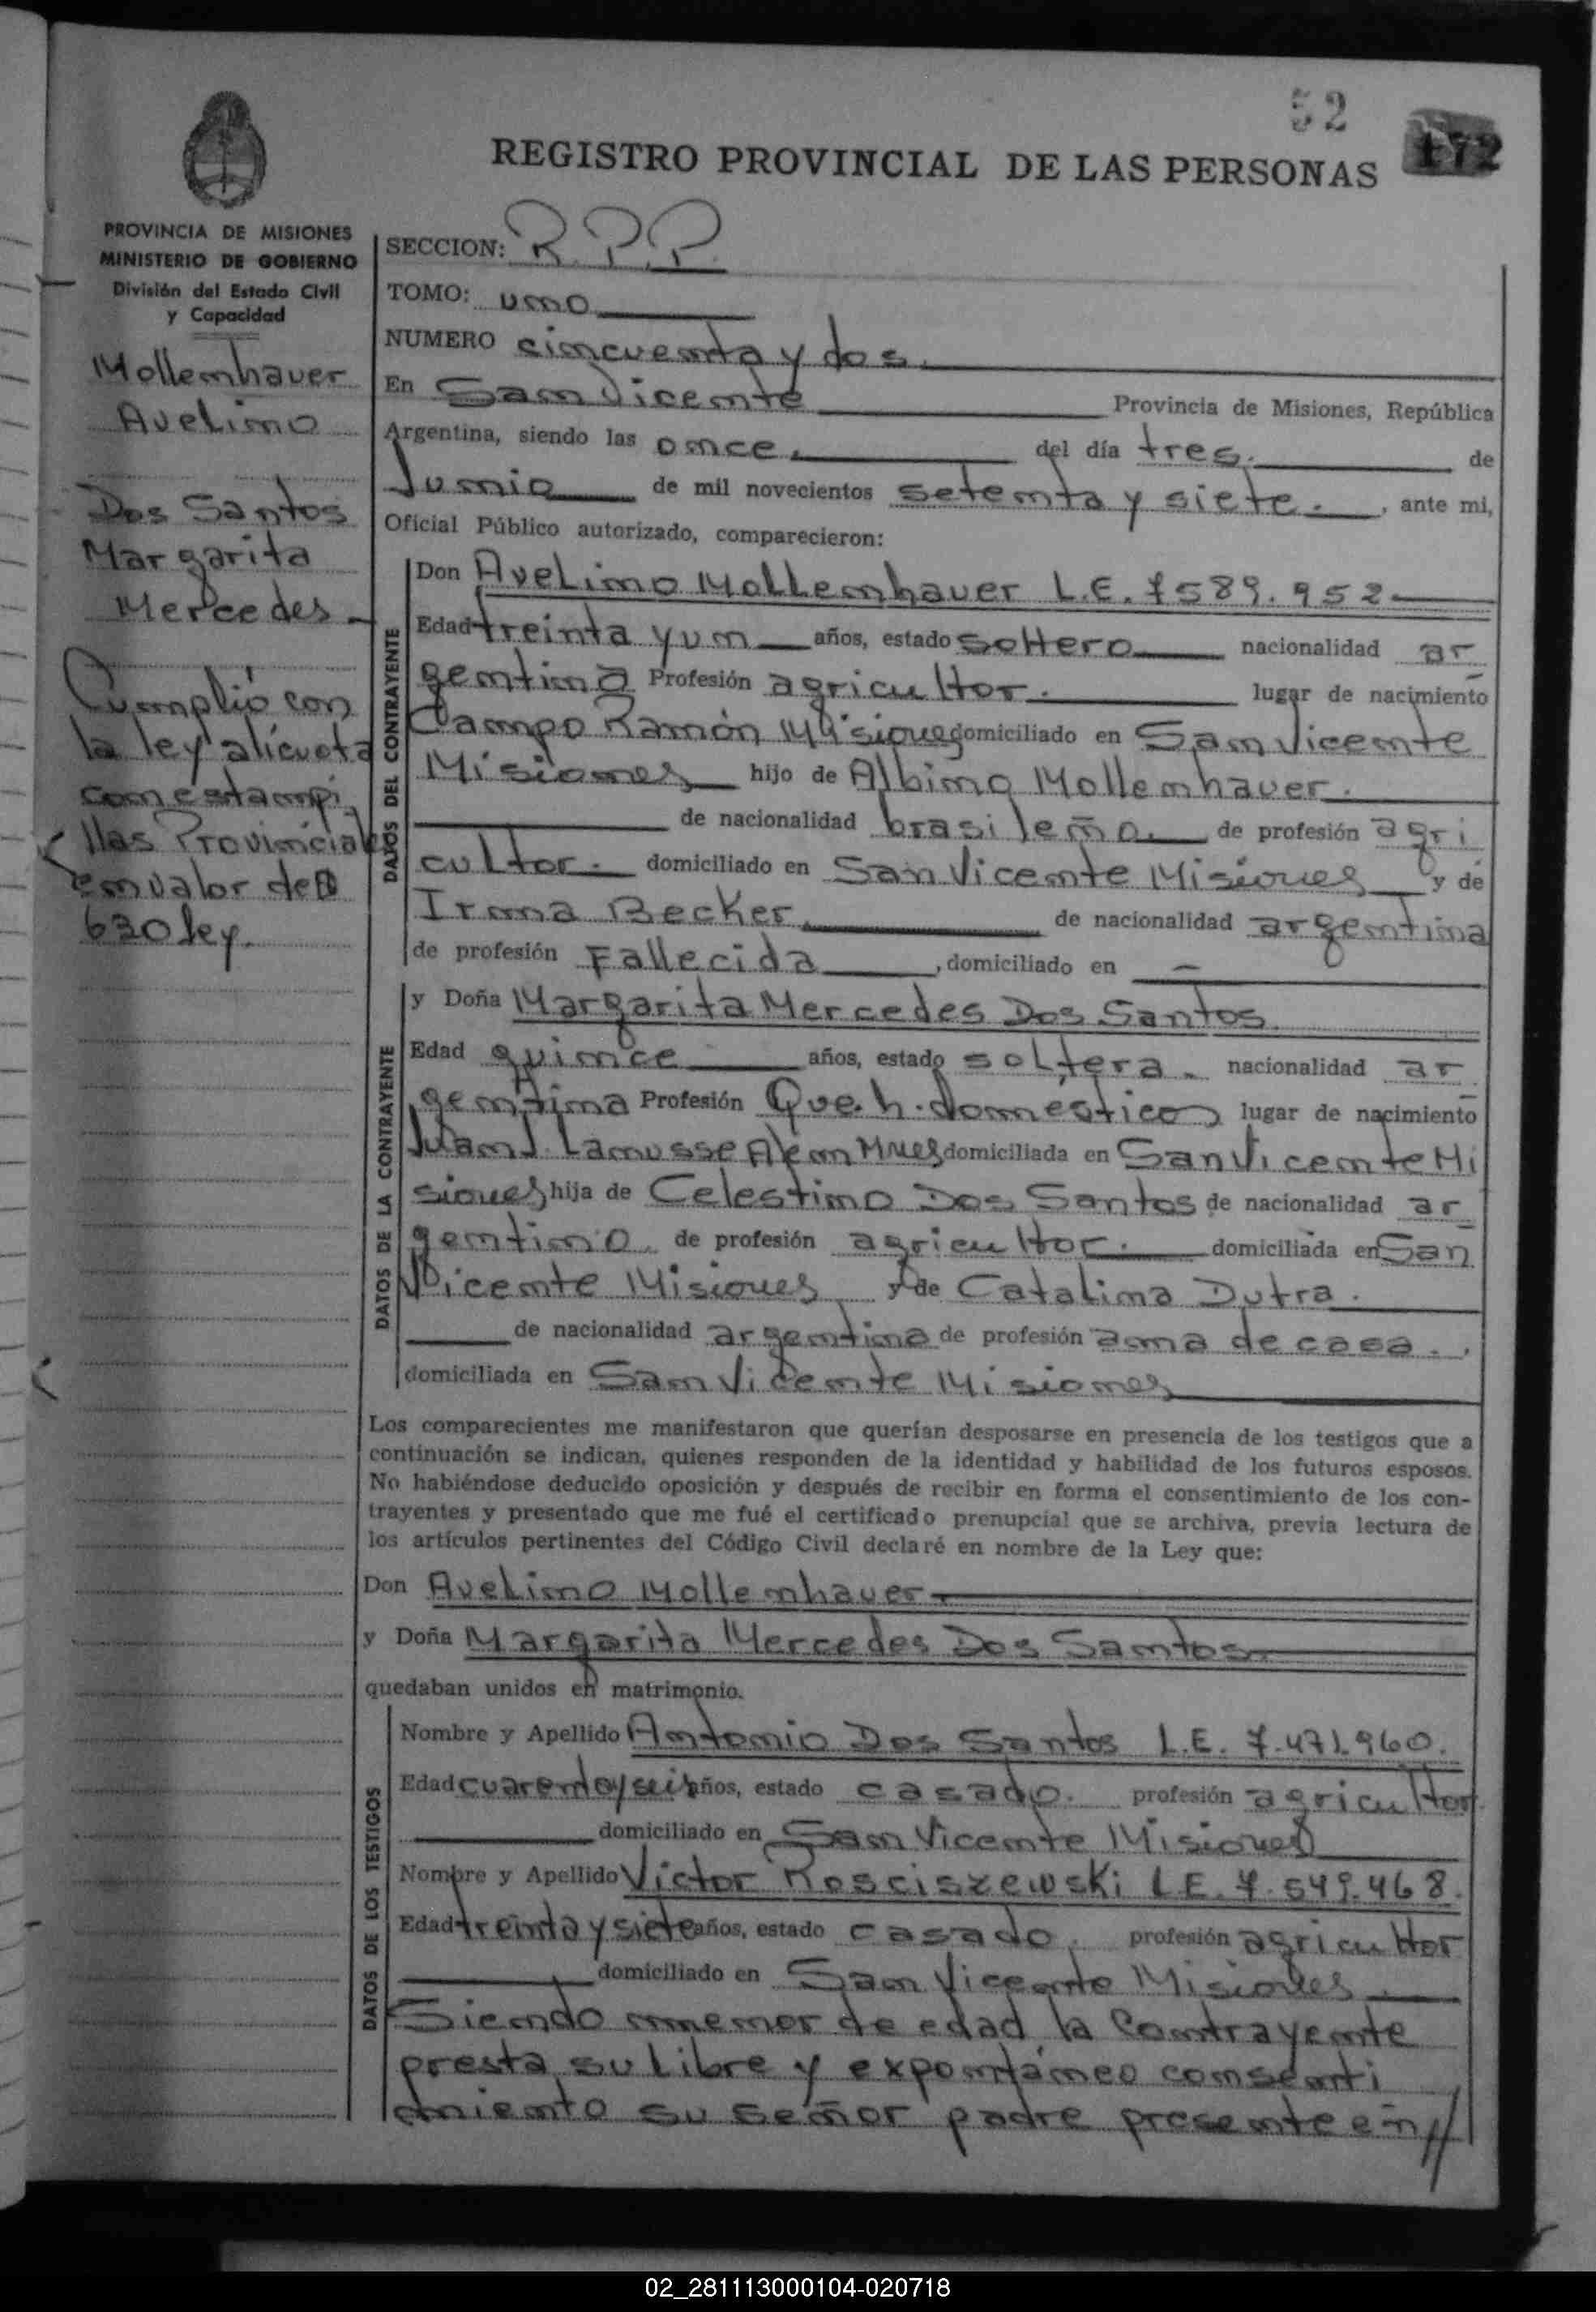 52
172
REGISTRO PROVINCIAL DE LAS PERSONAS
PROVINCIA DE MISIONES
MINISTERIO DE GOBIERNO
División del Estado Civil
y Capacidad
Mollenhauer
Avelino
Dos Santos
Margarita
Mercedes
Cumplió con
la ley alicuota
con estampi
llas Provinciales
en valor de $
630 ley.
SECCION: R.P.P.
TOMO: uno
NUMERO cincuenta y dos.
En San Vicente Provincia de Misiones, República
Argentina, siendo las once, del día tres. de
Junio de mil novecientos setenta y siete. , ante mi,
Oficial Público autorizado, comparecieron:
DATOS DEL CONTRAYENTE
Don Avelino Mollenhauer L.E. 7589.952
Edad treinta y un años, estado soltero nacionalidad ar
gentina Profesión agricultor. lugar de nacimiento
Campo Ramón Misiones domiciliado en San Vicente
Misiones hijo de Albino Mollenhauer.
de nacionalidad brasileña. de profesión agri
cultor. domiciliado en San Vicente Misiones y de
Irma Becker, de nacionalidad argentina
de profesión Fallecida , domiciliado en —
DATOS DE LA CONTRAYENTE
y Doña Margarita Mercedes Dos Santos.
Edad quince años, estado soltera. nacionalidad ar
gentina Profesión Que. h. domesticos lugar de nacimiento
Juan J. Lanusse Alem Mnes domiciliada en San Vicente Mi
siones hija de Celestino Dos Santos de nacionalidad ar
gentino. de profesión agricultor. domiciliada en San
Vicente Misiones y de Catalina Dutra.
de nacionalidad argentina de profesión ama de casa. ,
domiciliada en San Vicente Misiones
Los comparecientes me manifestaron que querían desposarse en presencia de los testigos que a
continuación se indican, quienes responden de la identidad y habilidad de los futuros esposos.
No habiéndose deducido oposición y después de recibir en forma el consentimiento de los con-
trayentes y presentado que me fué el certificado prenupcial que se archiva, previa lectura de
los artículos pertinentes del Código Civil declaré en nombre de la Ley que:
Don Avelino Mollenhauer
y Doña Margarita Mercedes Dos Santos.
quedaban unidos en matrimonio.
DATOS DE LOS TESTIGOS
Nombre y Apellido Antonio Dos Santos L.E. 7.471.960.
Edad cuarenta y seis años, estado casado. profesión agricultor
domiciliado en San Vicente Misiones
Nombre y Apellido Victor Rosciszewski L.E. 7.549.468.
Edad treinta y siete años, estado casado, profesión agricultor
domiciliado en San Vicente Misiones
Siendo menor de edad la Contrayente
presta su libre y expontáneo consenti
miento su señor padre presente en //
02_281113000104-020718